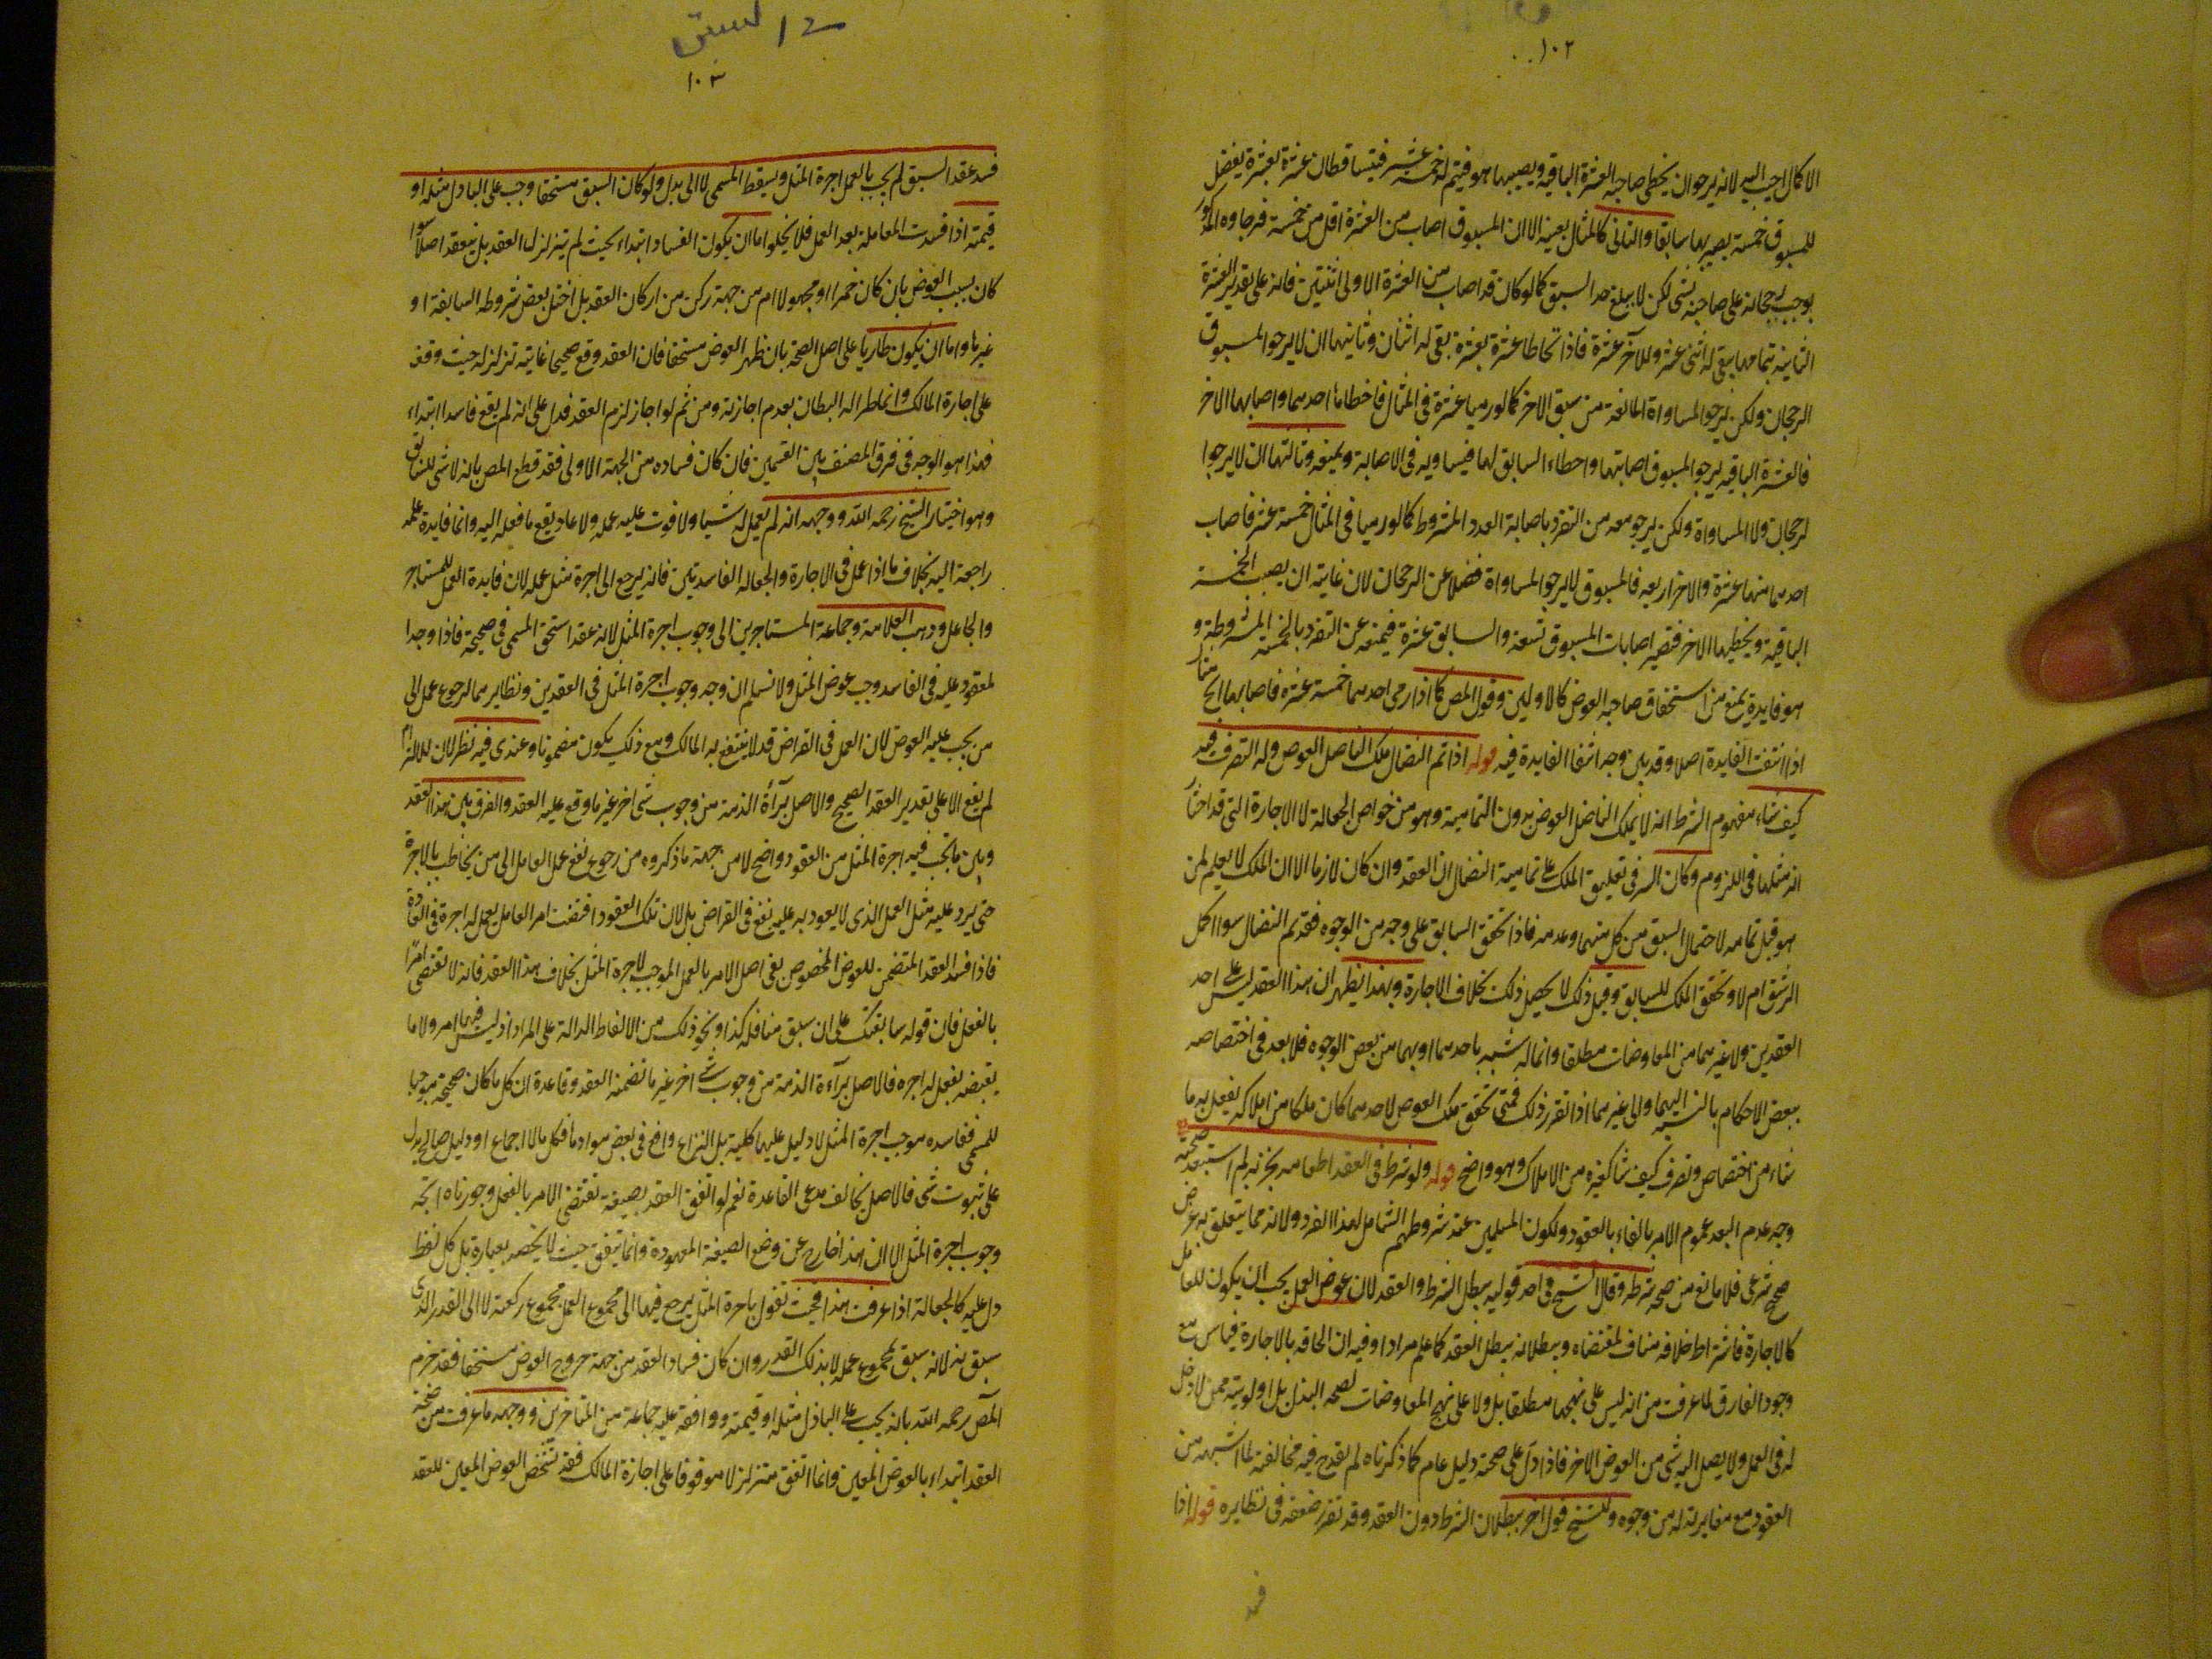 ١٠٢
الاكمال اجيب اليه لانه يرجو ان يخطى صاحبه العشرة الباقية ويصيبها هو فيتم له خمسة عشر فيتساقطان عشرة بعشرة يفضل
للمسبوق خمسة يصير بها سابقا والثانى كالمثال بعينه الا ان المسبوق اصاب من العشرة اقل من خمسة فرجاوه المذكور
يوجب رجحانه على صاحبه بشى لكن لا يبلغ حد السبق كما لو كان قد اصاب من العشرة الاولى اثنتين فانه على تقدير العشرة
الثانية بتمامها يبقى له اثنى عشرة وللآخر عشرة فاذا تحاطا عشرة بعشرة بقى له اثنان وثانيتهما ان لا يرجوا المسبوق
الرجحان ولكن يرجو المساواة المانعة من سبق الاخر كما لو رميا عشرة فى المثال فاخطاها احدهما واصابها الاخر
فالعشرة الباقيه يرجو المسبوق اصابتها واخطاء السابق لها فيساويه فى الاصابة ويمنعه وثالثتها ان لا يرجوا
لرجحان ولا المساواة ولكن يرجو منعه من التفرد باصابة العدد المشروط كما لو رميا فى المثال خمسة عشر فاصاب
احدهما منها عشرة والاخر اربعه فالمسبوق لا يرجو المساواة فضلا عن الرجحان لان غايته ان يصيب الخمسة
الباقية ويخطيها الاخر فتصير اصابات المسبوق تسعة والسابق عشرة فيمنعه عن التفرد بالخمسة المشروطة و
هو فايدة يمنع من استحقاق صاحبه العوض كالاولين وقول المص كما اذا رمى احدهما خمسة عشرة فاصابها الخ مثال
اذا انتفت الفايدة اصلا وقد بين وجه انتفا الفايدة فيه قوله اذا تم النضال ملك الناضل العوض وله التصرف فيه
كيف شاء مفهوم الشرط انه لا يملك الناضل العوض بدون التماميه وهو من خواص الجعالة لا الاجارة التى قد اختار
انه مثلها فى اللزوم وكان السر فى تعليق الملك على تمامية النضال ان العقد وان كان لازما الا ان الملك لا يعلم لمن
هو قبل تمامه لاحتمال السبق من كل منهما وعدمه فاذا تحقق السابق على وجه من الوجوه فقد تم النضال سواء اكمل
الرشق ام لا وتحقق الملك للسابق وقبل ذلك لا يحصل ذلك بخلاف الاجارة وبهذا يظهر ان هذا العقد ليس على احد
العقدين ولا غيرهما من المعاوضات مطلقا وانما له شبه باحدهما او بهما من بعض الوجوه فلا بعد فى اختصاصه
ببعض الاحكام بالنسبة اليهما والى غيرهما اذا تقرر ذلك فمتى تحقق ملك العوض لاحدهما كان ملكا من املاكه يفعل به ما
شاء من اختصاص وتصرف كيف شا كغيره من الاملاك وهو واضح قوله ولو شرط فى العقد اطعامه بحزبه لم استبعد صحته
وجه عدم البعد عموم الامر بالوفاء بالعقود ولكون المسلمين عند شروطهم الشامل لهذا الفرد ولانه مما يتعلق به غرض
صحيح شرعى فلا مانع من صحة شرطه وقال الشيخ فى احد قوليه يبطل الشرط والعقد لان عوض العمل يجب ان يكون للعامل
كالاجارة فاشتراط خلافه مناف لمقتضاه وبطلانه يبطل العقد كما علم مرارا وفيه ان الحاقه بالاجارة قياس مع
وجود الفارق لما عرفت من انه ليس على نهجها مطلقا بل ولا على نهج المعاوضات لصحة البذل بل اولويته ممن لا دخل
له فى العمل ولا يصل اليه شى من العوض الاخر فاذا دل على صحته دليل عام كما ذكرناه لم يقدح فيه مخالفته لما اشبهه من
العقود مع مغايرته له من وجوه وللشيخ قول اخر ببطلان الشرط دون العقد وقد تقرر ضعفه فى نظايره قوله اذا
فسد
١٢ سبق
١٠٣
فسد عقد السبق لم يجب بالعمل اجرة المثل ويسقط المسمى لا الى بدل ولو كان السبق مستحقا وجب على الباذل مثله او
قيمته اذا فسدت المعاملة بعد العمل فلا يخلوا ما ان يكون الفساد ابتداء بحيث لم يتزلزل العقد بل ينعقد اصلا سوا
كان بسبب العوض بان كان خمرا او مجهولا ام من جهة ركن من اركان العقد بل اختل بعض شروطه السابقة او
غيرها واما ان يكون طاريا على اصل الصحة بان ظهر العوض مستحقا فان العقد وقع صحيحا غايته تزلزله حيث وقف
على اجارة المالك وانما طرا له البطلان بعدم اجازته ومن ثم لو اجاز لزم العقد فدل على انه لم يقع فاسدا ابتداء
فهذا هو الوجه فى فرق المصنف بين القسمين فان كان فساده من الجهة الاولى فقد قطع المص بانه لا شى للسابق
وهو اختيار الشيخ رحمه الله ووجهه انه لم يعمل له شيا ولا فوت عليه عمله ولا عاد نفع ما فعله اليه وانما فايدة عمله
راجعة اليه بخلاف ما اذا عمل فى الاجارة والجعاله الفاسدتين فانه يرجع الى اجرة مثل عمله لان فايدة العمل للمستاجر
والجاعل وذهب العلامة وجماعة المتاخرين الى وجوب اجرة المثل لانه عقد استحق المسمى فى صحيحه فاذا وجد ا
لمعقود عليه فى الفاسد وجب عوض المثل ولا نسلم ان وجه وجوب اجرة المثل فى العقدين ونظايرهما لرجوع عمل الى
من يجب عليه العوض لان العمل فى القراض قد لا ينتفع به المالك ومع ذلك يكون مضمونا وعندى فيه نظر لان الالتزام
لم يقع الا على تقدير العقد الصحيح والاصل برآءة الذمة من وجوب شى اخر غير ما وقع عليه العقد والفرق بين هذا العقد
وبين ما تجب فيه اجرة المثل من العقود واضح لا من جهة ما ذكروه من رجوع نفع عمل العامل الى من يخاطب بالاجرة
حتى يرد عليه مثل العمل الذى لا يعود به عليه نفع فى القراض بل لان تلك العقود اقتضت امر العامل بعمل له اجرة فى العادة
فاذا فسد العقد المتضمن للعوض المخصوص بقى اصل الامر بالعمل الموجب لاجرة المثل بخلاف هذا العقد فانه لا تقتضى امرا
بالفعل فان قوله سابقتك على ان سبق منا فله كذا ونحو ذلك من الالفاظ الدالة على المراد اذ ليس فيها امر ولا ما
يقتضه بفعل له اجره فالاصل برآءة الذمة من وجوب شى اخر غير ما تضمنه العقد وقاعدة ان كل ما كان صحيحه موجبا
للمسمى ففاسده موجب اجرة المثل لا دليل عليها كلية بل النزاع واقع فى بعض مواردها فكل ما لا اجماع او دليل صالح يدل
على ثبوت شى فالاصل يخالف مدعى القاعدة نعم لو اتفق العقد بصيغة تقتضى الامر بالفعل وجوزناه اتجه
وجوب اجرة المثل الا ان هذا خارج عن وضع الصيغة المعهودة وانما يتفق حيث لا يخصه بعبارة بل كل لفظ
دل عليه كالجعالة اذا عرفت هذا فحيث نقول باجرة المثل يرجع فيها الى مجموع العمل مجموع ركضه لا الى القدر الذى
سبق به لانه سبق بمجموع عمله لا بذلك القدر وان كان فساد العقد من جهة خروج العوض مستحقا فقد جزم
المص رحمه الله بانه يجب على الباذل مثله او قيمته ووافقه عليه جماعة من المتاخرين ووجهه ما عرفت من صحة
العقد ابتداء بالعوض المعين وانما اتفق متزلزلا موقوفا على اجازة المالك فقد تشخص العوض المعين للعقد